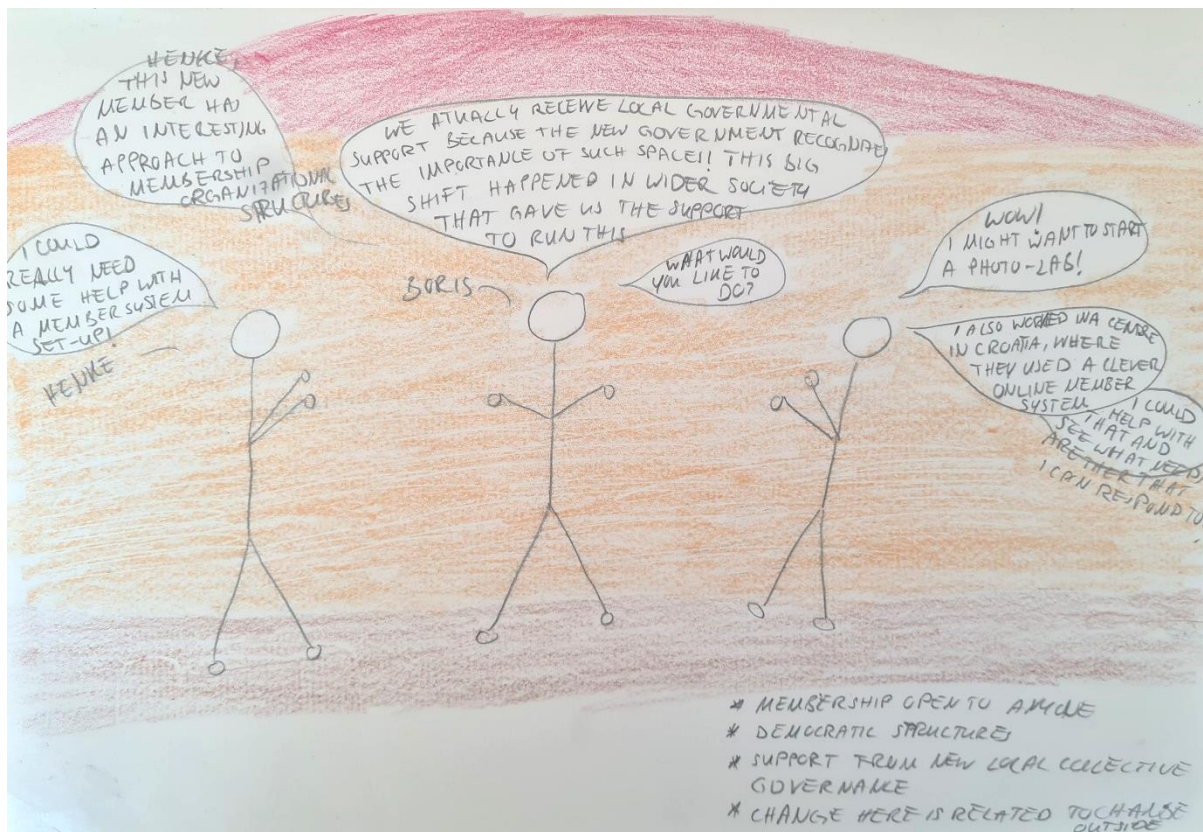 HENKE,
THIS NEW
MEMBER HAS
AN INTERESTING
APPROACH TO
MEMBERSHIP
ORGANIZATIONAL
STRUCTURES
WE ATUALLY RECEIVE LOCAL GOVERNMENTAL
SUPPORT BECAUSE THE NEW GOVERNMENT RECOGNIZE
THE IMPORTANCE OF SUCH SPACES!! THIS BIG
SHIFT HAPPENED IN WIDER SOCIETY
THAT GAVE US THE SUPPORT
TO RUN THIS
I COULD
REALLY NEED
SOME HELP WITH
A MEMBER SYSTEM
SET-UP!
HENKE
BORIS
WHAT WOULD
YOU LIKE TO
DO?
WOW!
I MIGHT WANT TO START
A PHOTO-LAB!
I ALSO WORKED IN A CENTRE
IN CROATIA, WHERE
THEY USED A CLEVER
ONLINE MEMBER
SYSTEM
I COULD
HELP WITH
THAT AND
SEE WHAT NEEDS
ARE THER THAT
I CAN RESPOND TO.
* MEMBERSHIP OPEN TO ANYONE
* DEMOCRATIC STRUCTURES
* SUPPORT FROM NEW LOCAL COLLECTIVE
GOVERNANCE
* CHANGE HERE IS RELATED TO CHANGE
OUTSIDE